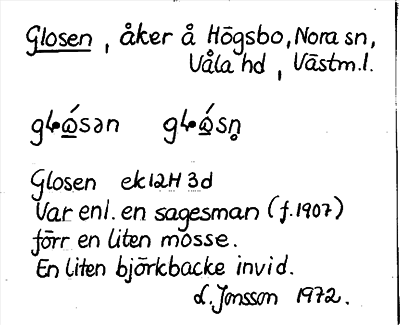 Glosen, åker å Högsbo, Nora sn,
Våla hd, Västm.l.
gɫώ̲sən gɫώ̲sn̥
Glosen ek 12H 3d
Var enl. en sagesman (f. 1907)
förr en liten mosse.
En liten björkbacke invid.
L. Jonsson 1972.